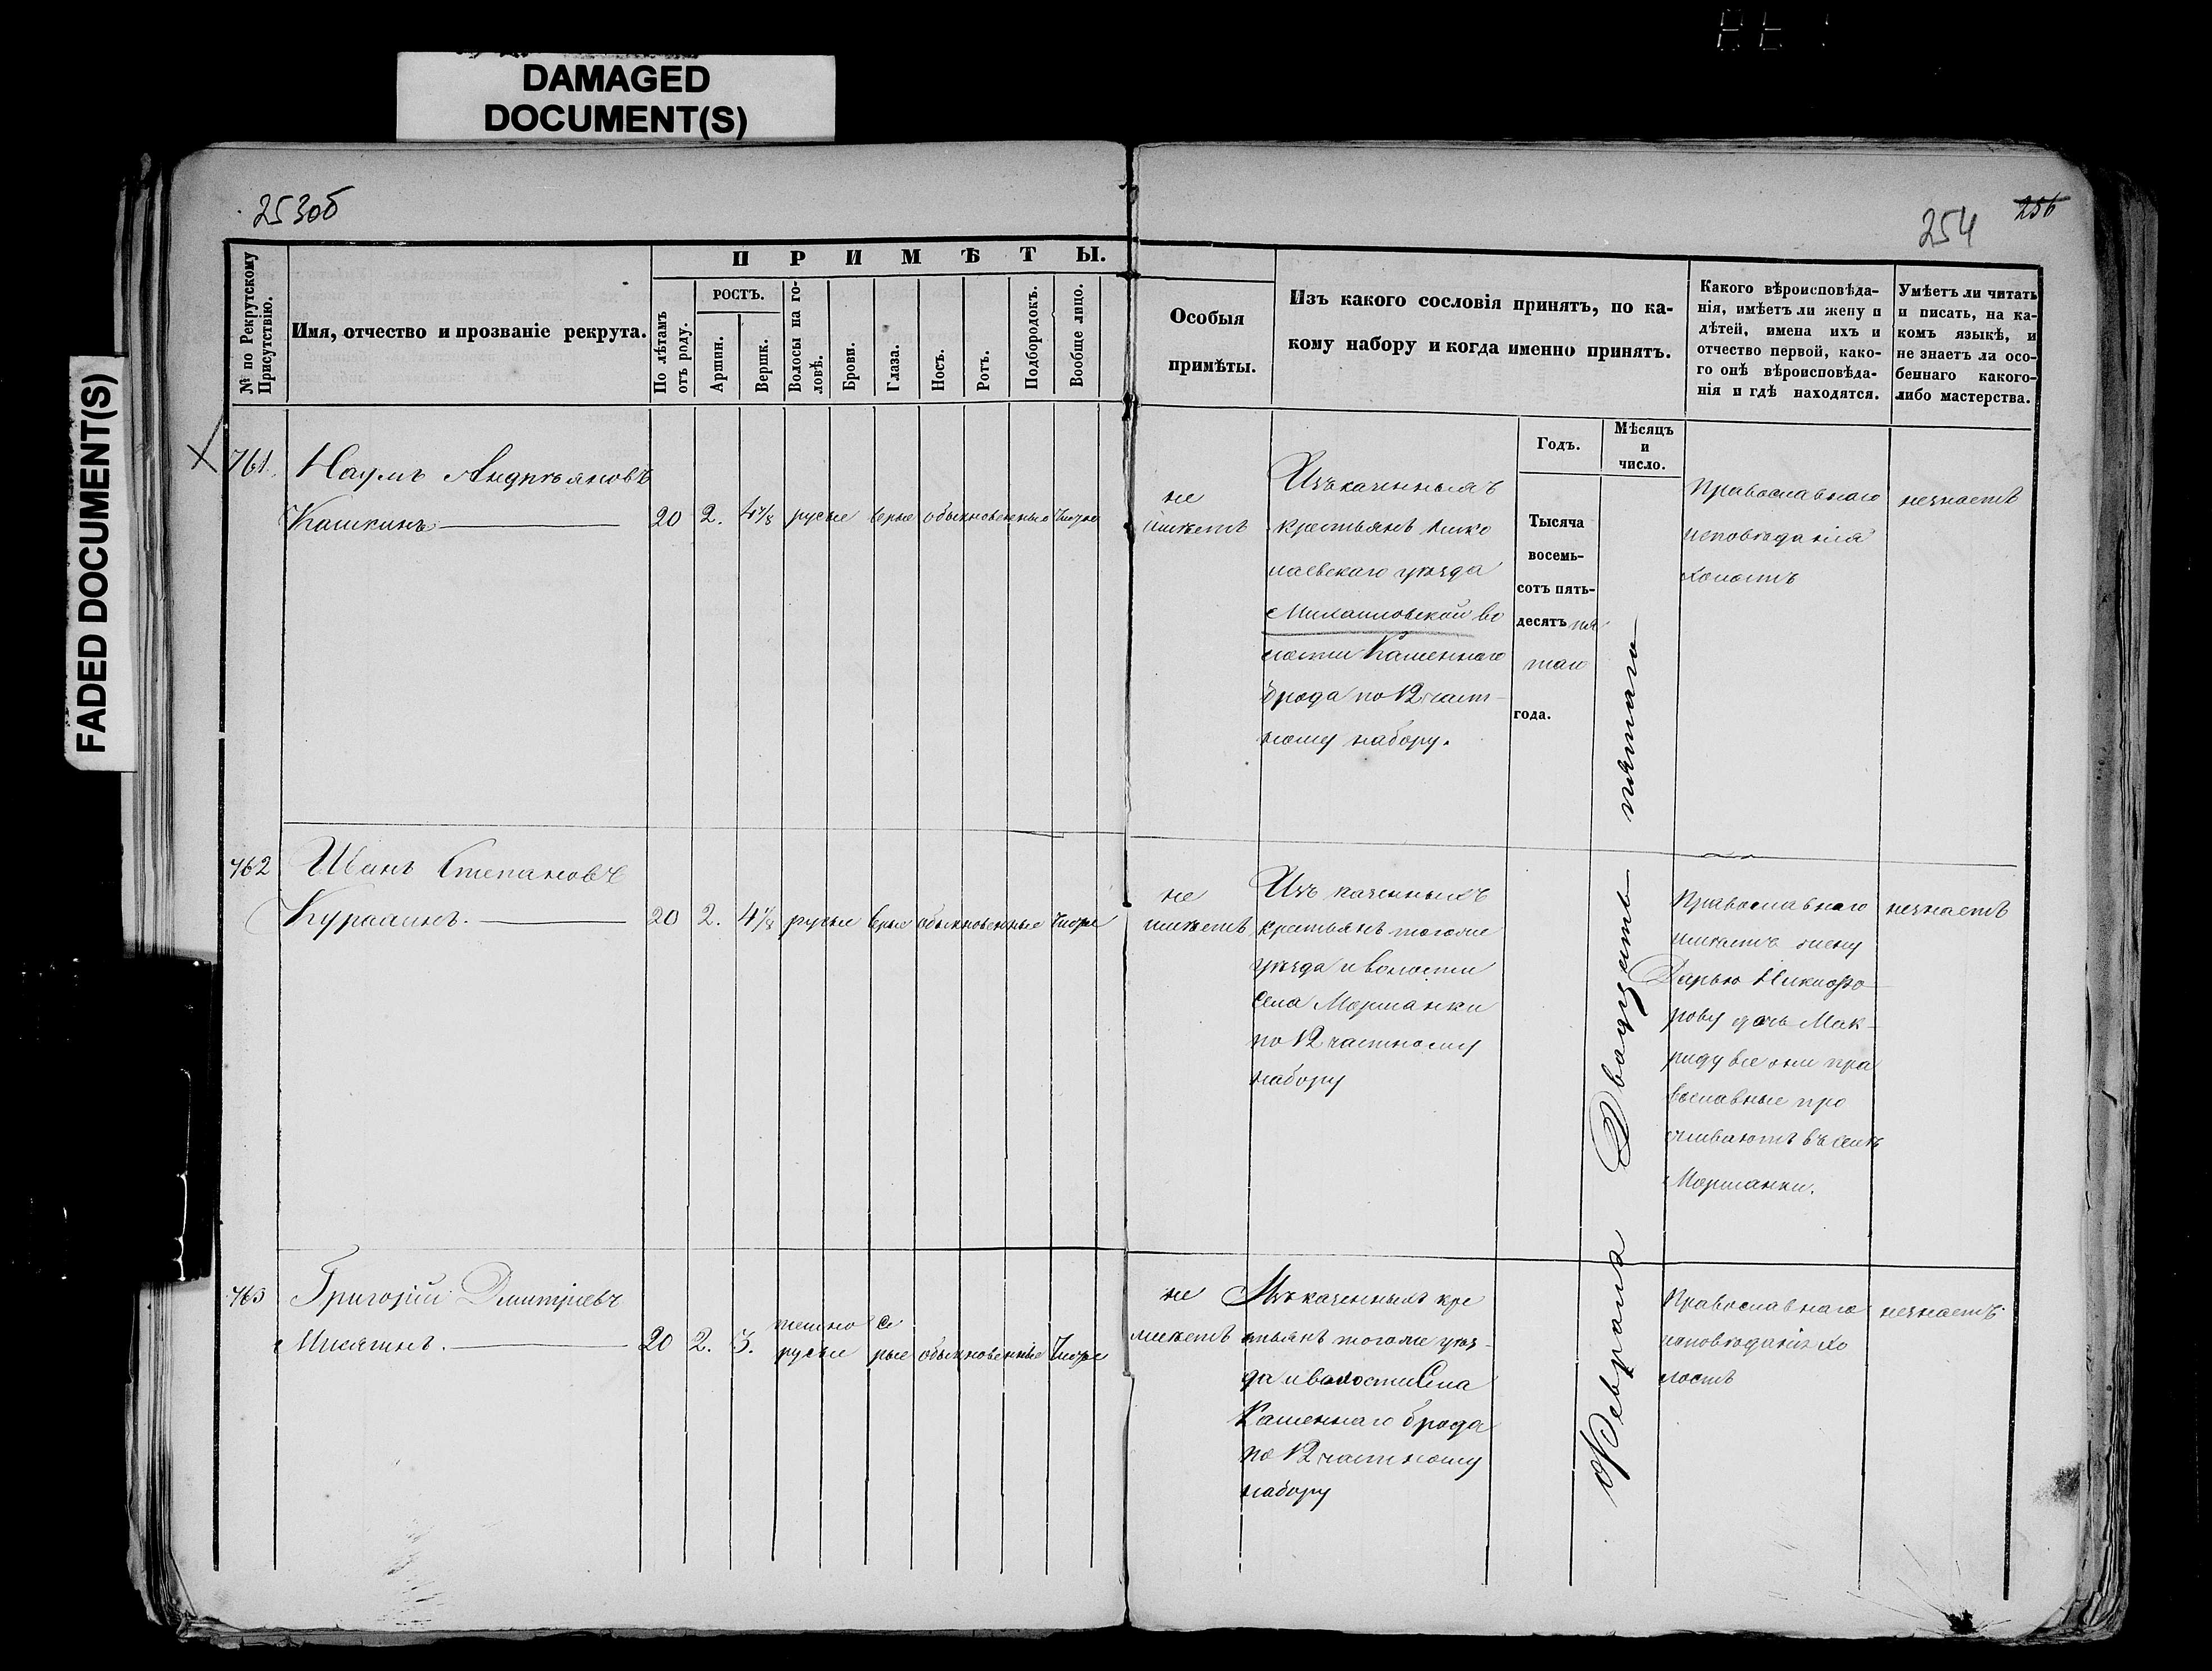 DAMAGED
DOCUMENT(S)
FADED DOCUMENT(S)
253об
254
256
№ по Рекрутскому Присутствію.
Имя, отчество и прозваніе рекрута.
ПРИМѢТЫ.
По лѣтамъ отъ роду.
РОСТЪ.
Аршин.
Вершк.
Волосы на головѣ.
Брови.
Глаза.
Носъ.
Ротъ.
Подбородокъ.
Вообще лицо.
Особыя
примѣты.
Изъ какого сословія принятъ, по ка-
кому набору и когда именно принятъ.
Какого вѣроисповѣда-
нія, имѣетъ ли жену и
дѣтей, имена ихъ и
отчество первой, како-
го онѣ вѣроисповѣда-
нія и гдѣ находятся.
Умѣетъ ли читать
и писать, на ка-
комъ языкѣ, и
не знаетъ ли осо-
беннаго какого-
либо мастерства.
Годъ.
Мѣсяцъ
и
число.
761.
Наумъ Андреяновъ
Кашкинъ
20 2. 4 1/8 русые серые обыкновенные чистое
не
имѣетъ
Изъ казенныхъ
крестьянъ Нико
лаевскаго уѣзда
Михаиловской во
лости Каменнаго
брода по 12 част-
ному набору.
Тысяча
восемь-
сотъ пять-
десятъ пя
таго
года.
Февраля Двадцать пятаго
Православнаго
исповѣданія
холостъ
незнаетъ
762
Иванъ Степановъ
Куралинъ.
20 2. 4 1/8 русые серые обыкновенные чистое
не
имѣетъ
Изъ казенныхъ
крестьянъ тогоже
уѣзда и волости
села Моршанки
по 12 частному
набору
Православнаго
имѣетъ жену
Дарью Никифо-
рову дочь Мак-
риду все они пра
вославные про
живаютъ въ селѣ
Моршанки.
незнаетъ
763
Григорій Дмитріевъ
Микятинъ.
20 2. 3. темно русые се рые обыкновенные чистое
не
имѣетъ
Изъ казенныхъ кре
стьянъ тогоже уѣз-
да и волости Села
Каменнаго брода
по 12 частному
набору
Православнаго
исповѣданія хо
лостъ
незнаетъ